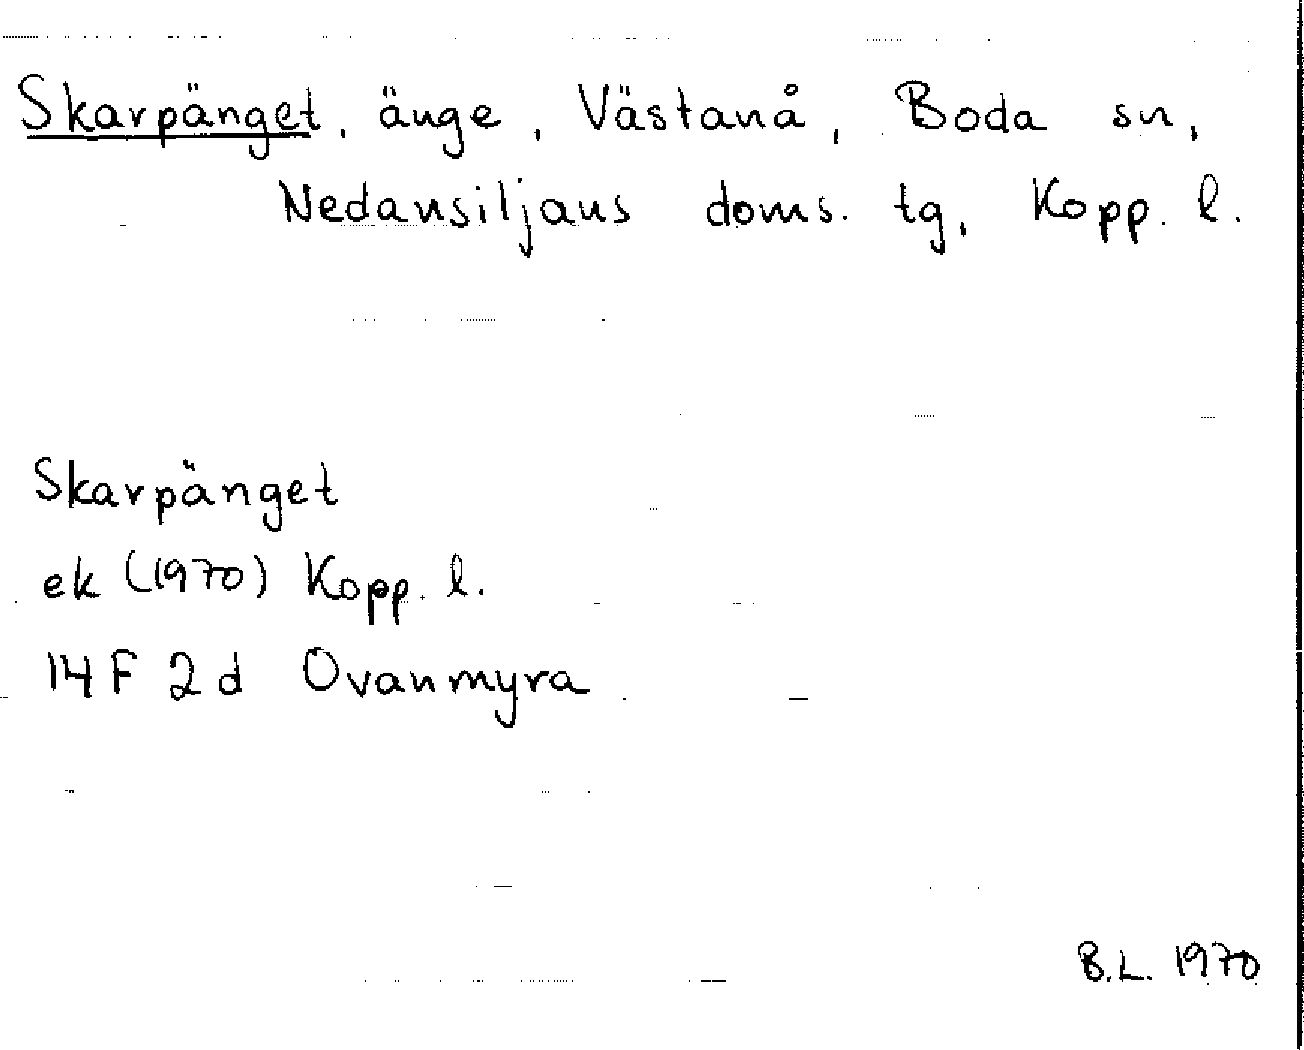 Skarpänget, änge, Västanå, Boda sn,
Nedansiljans doms. tg, Kopp. l.
Skarpänget
ek (1970) Kopp. l.
14 F 2 d Ovanmyra
B.L. 1970